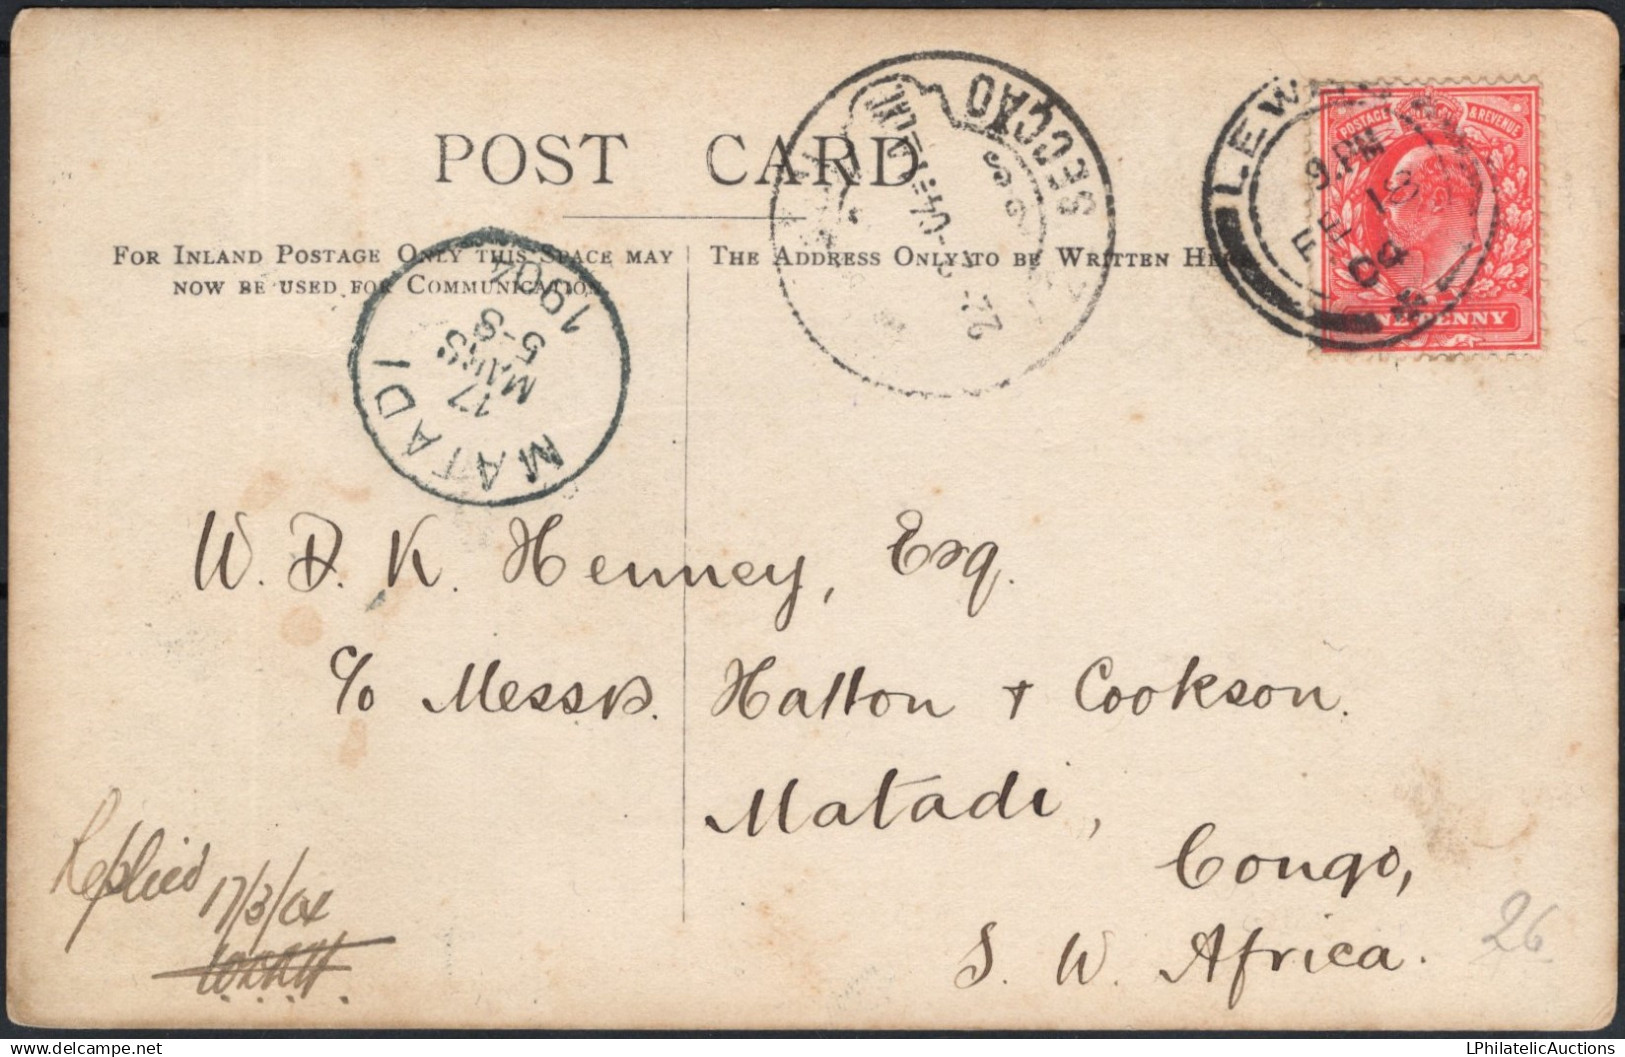 POST CARD
FOR INLAND POSTAGE ONLY THIS SPACE MAY
NOW BE USED FOR COMMUNICATION.
THE ADDRESS ONLY TO BE WRITTEN HERE
SECÇÃO
22-2-04
LEW
9.PM
FE 18
04
POSTAGE & REVENUE
ONE PENNY
MATADI
17
MARS
5-S
1904
W. D. K. Henney, Esq.
c/o Messrs. Hatton + Cookson.
Matadi,
Congo,
S. W. Africa.
Replied
17/3/04
26
www.delcampe.net
LPhilatelicAuctions